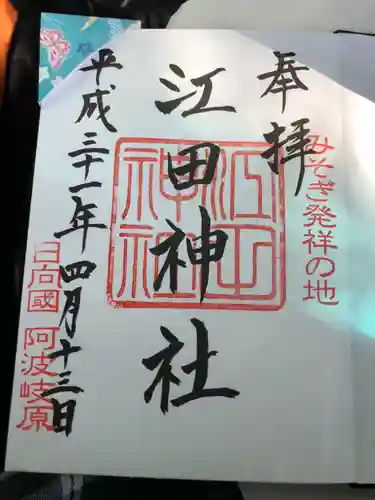 奉拝
みそぎ発祥の地
江田神社
江田神社
平成三十一年四月十三日
日向國 阿波岐原